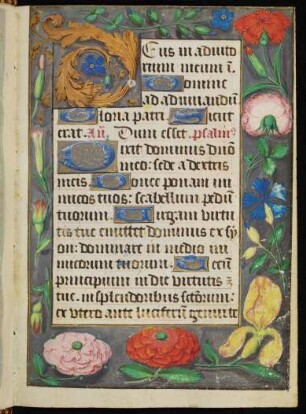 Eus in adiuto
rium meum i.
Domine
ad adiuuandū
loria patri. Sicut
erat. Añ. Dum esset. psalm9
Dixit dominus dño
meo: sede a dextris
meis. Donec ponam ini
micos tuos: scabellum pedū
tuorum. Virgam virtu
tis tue emittet dominus ex sy
on: dominare in medio ini
micorum tuorum. Tecū
principium in die virtutis
tue. in splendoribus sctōrum:
ex vtero ante luciferū genui te